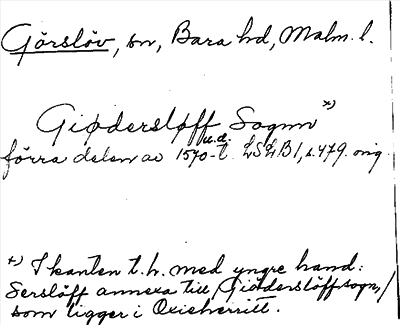 Görslöv, sn, Bara hd, Malm. l.
Giødersløff Sognn *)
u.d.
förra delen av 1570-t. LSLB1, s. 479. orig.
*) I kanten t.h. med yngre hand:
Serslöff annexa till Giöderslöffsogn,/
som ligger i Oxieherritt.